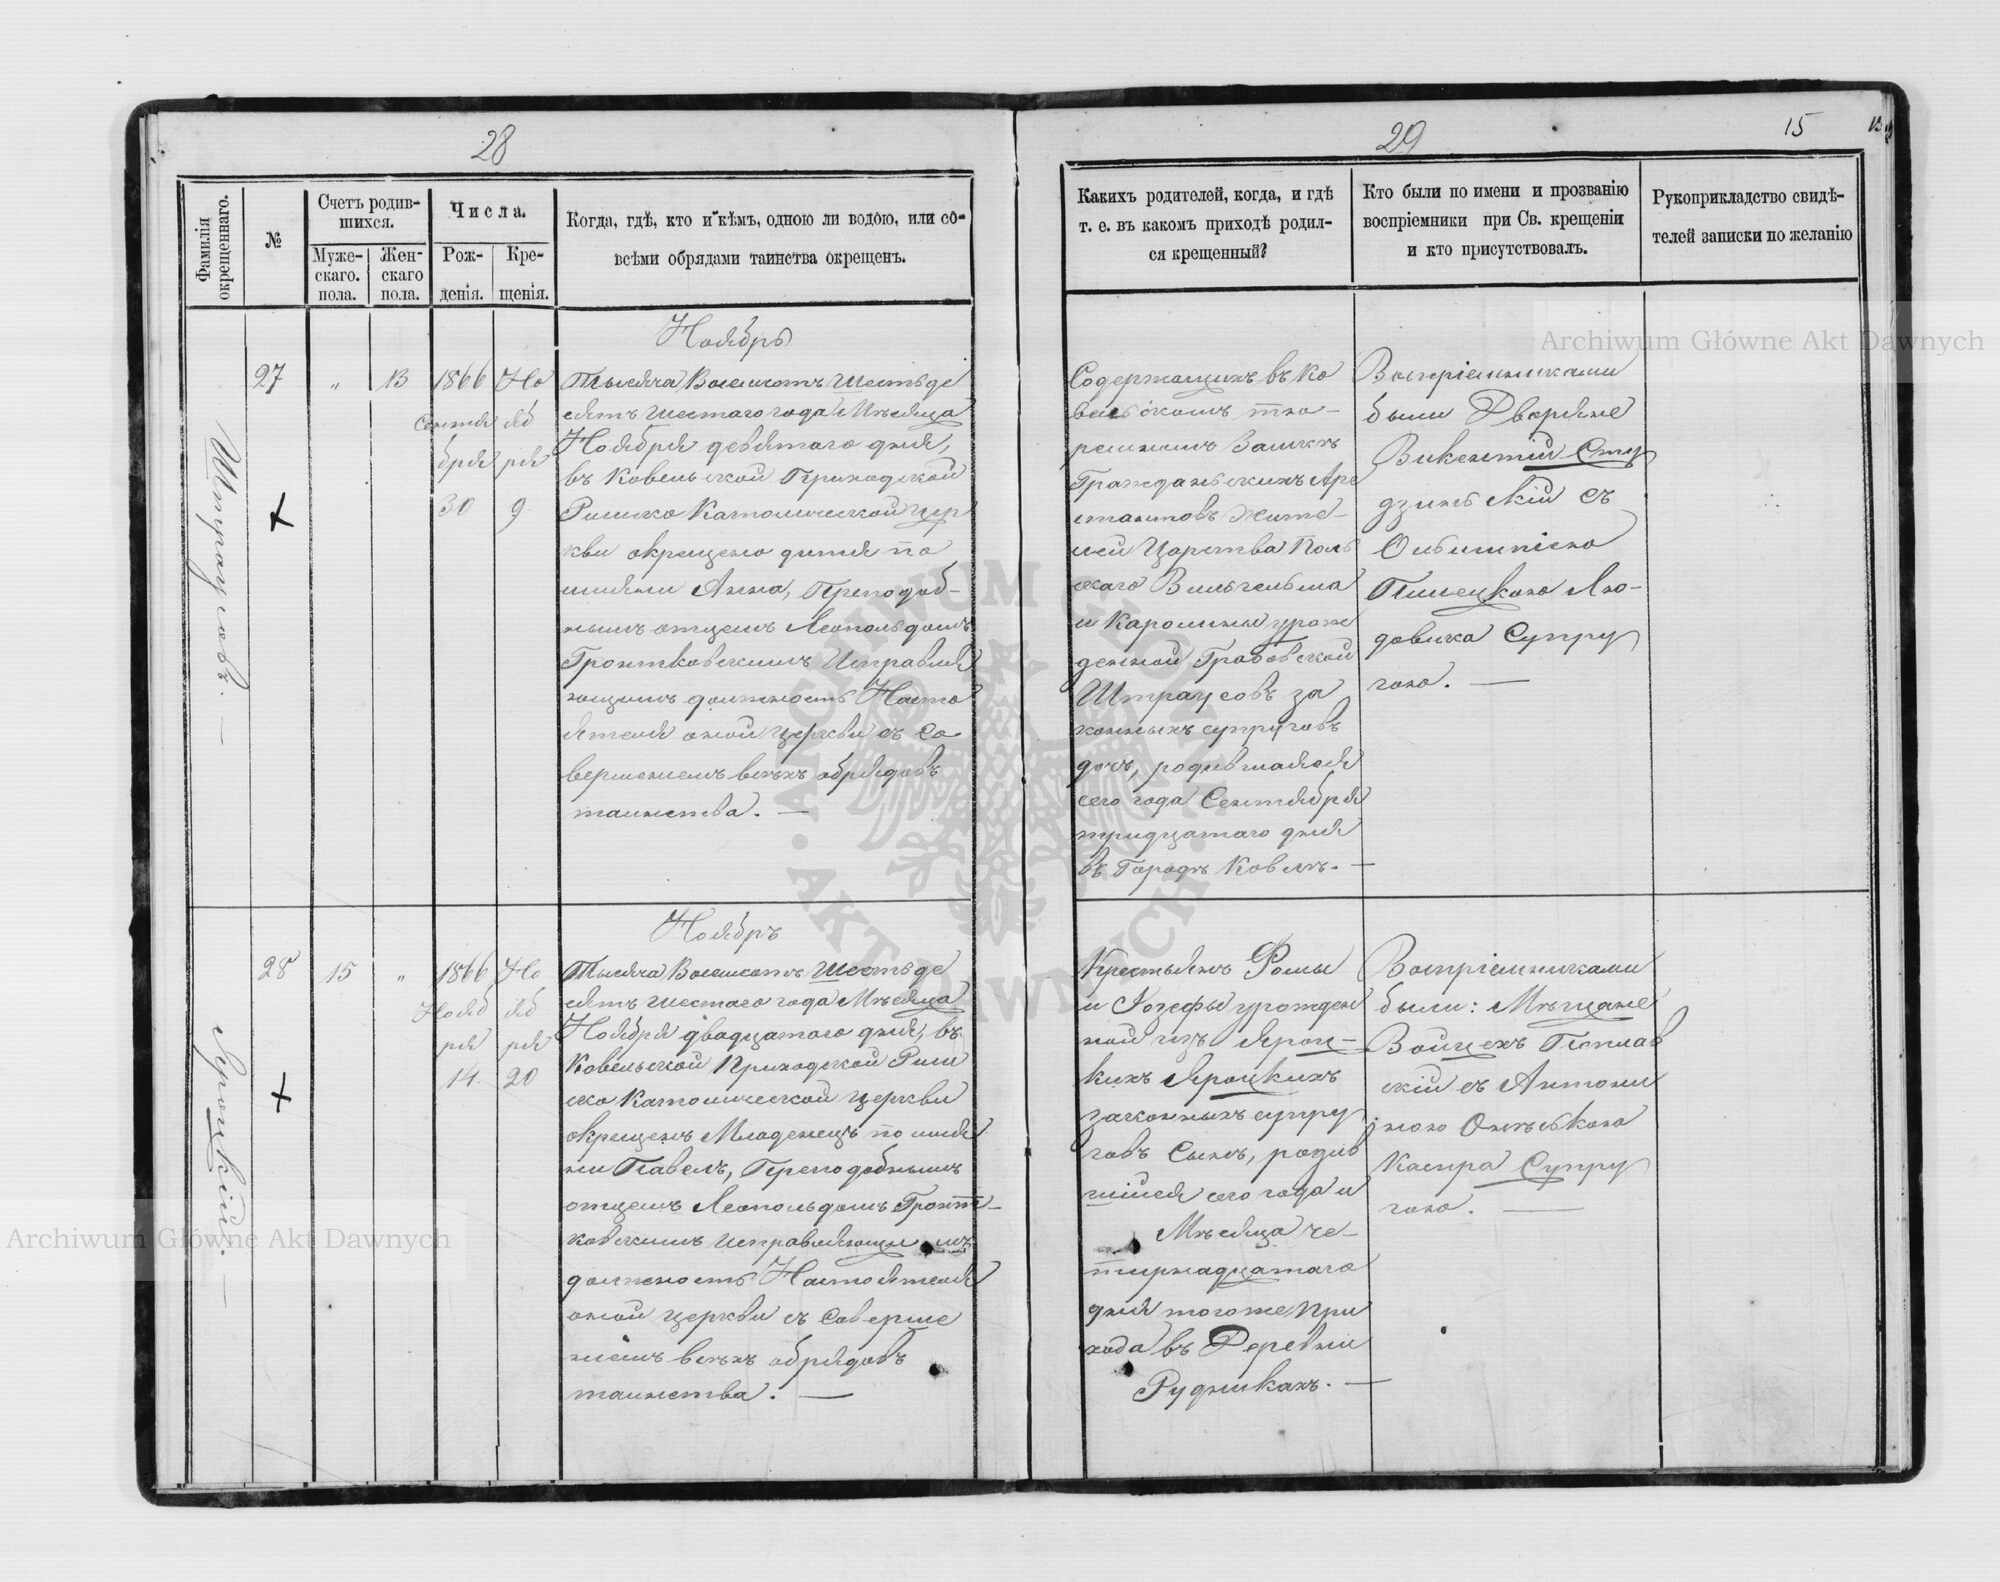 28
Фамилія окрещеннаго.
№
Счетъ родившихся.
Мужескаго. пола.
Женскаго пола.
Числа.
Рожденія.
Крещенія.
Когда, гдѣ, кто и кѣмъ, одною ли водою, или со-
всѣми обрядами таинства окрещенъ.
Штраусовъ. —
27
"
13
1866 Сентября 30
Ноября 9
Ноябрь
Тысяча Восемсотъ Шестьде
сятъ шестаго года Мѣсяца
Ноября девятаго дня,
въ Ковельской Приходской
Римско Католической Цер
кви окрещено дитя по
имени Анна, Преподоб-
нымъ отцемъ Леопольдомъ
Гронтковскимъ Исправля
ющимъ должность Насто
ятеля оной церкви съ Со
вершенiемъ всѣхъ обрядовъ
таинства. —
Яроцкій. —
28
15
"
1866 Ноября 14.
Ноября 20
Ноябрь
Тысяча Восемсотъ Шестьде
сятъ шестаго года Мѣсяца
Ноября двадцатаго дня, въ
Ковельской Приходской Рим
ско Католической церкви
окрещенъ Младенецъ по име
ни Павелъ, Преподобнымъ
отцемъ Леопольдомъ Гронт-
ковскимъ исправляющимъ
должность Настоятеля
оной церкви съ Соверше
нiемъ всѣхъ обрядовъ
таинства. —
29
15
Какихъ родителей, когда, и гдѣ
т. е. въ какомъ приходѣ родил-
ся крещенный?
Кто были по имени и прозванію
воспріемники при Св. крещеніи
и кто присутствовалъ.
Рукоприкладство свидѣ-
телей записки по желанію
Содержащихъ въ Ко
вельскомъ тю-
ремномъ Замкѣ
Гражданскихъ Аре
стантовъ жите-
лей Царства Поль
скаго Вильгельма
и Каролины урож
денной Грабовской
Штраусовъ за
конныхъ супруговъ
дочь, родившаяся
сего года Сентября
тридцатаго дня
въ Городѣ Ковелѣ. —
Воспріемниками
были Дворяне
Викентій Сту
дзинскій съ
Пинецкою Лю-
довика Супру
гою. —
Крестьянъ Фомы
и Іозефы урожден
ной изъ Яроц-
кихъ Яроцкихъ
законныхъ супру
говъ Сынъ, родив
шійся сего года и
Мѣсяца че-
тырнадцатаго
дня тогоже при
хода въ Деревни
Рудникахъ. —
Воспріемниками
были: Мѣщане
Войцехъ Теплав
скій съ Антони
ною
Каспра Супру
гою. —
Archiwum Główne Akt Dawnych
Archiwum Główne Akt Dawnych
ARCHIWUM GŁÓWNE AKT DAWNYCH